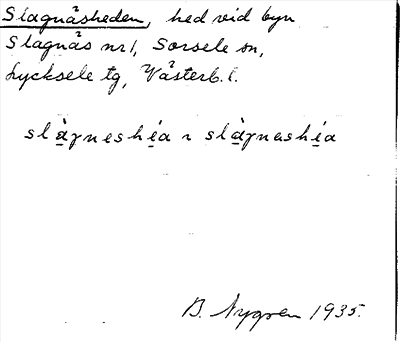 Slagnåsheden, hed vid byn
Slagnås nr 1, Sorsele sn,
Lycksele tg, Västerb. l.
slàgneshéa ~ slàgnashéa
B. Nygren 1935.